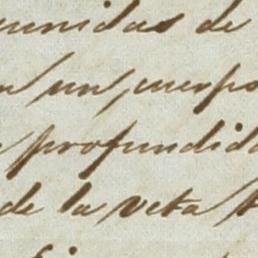 unidas de
un cuerpo
profundida
de la veta